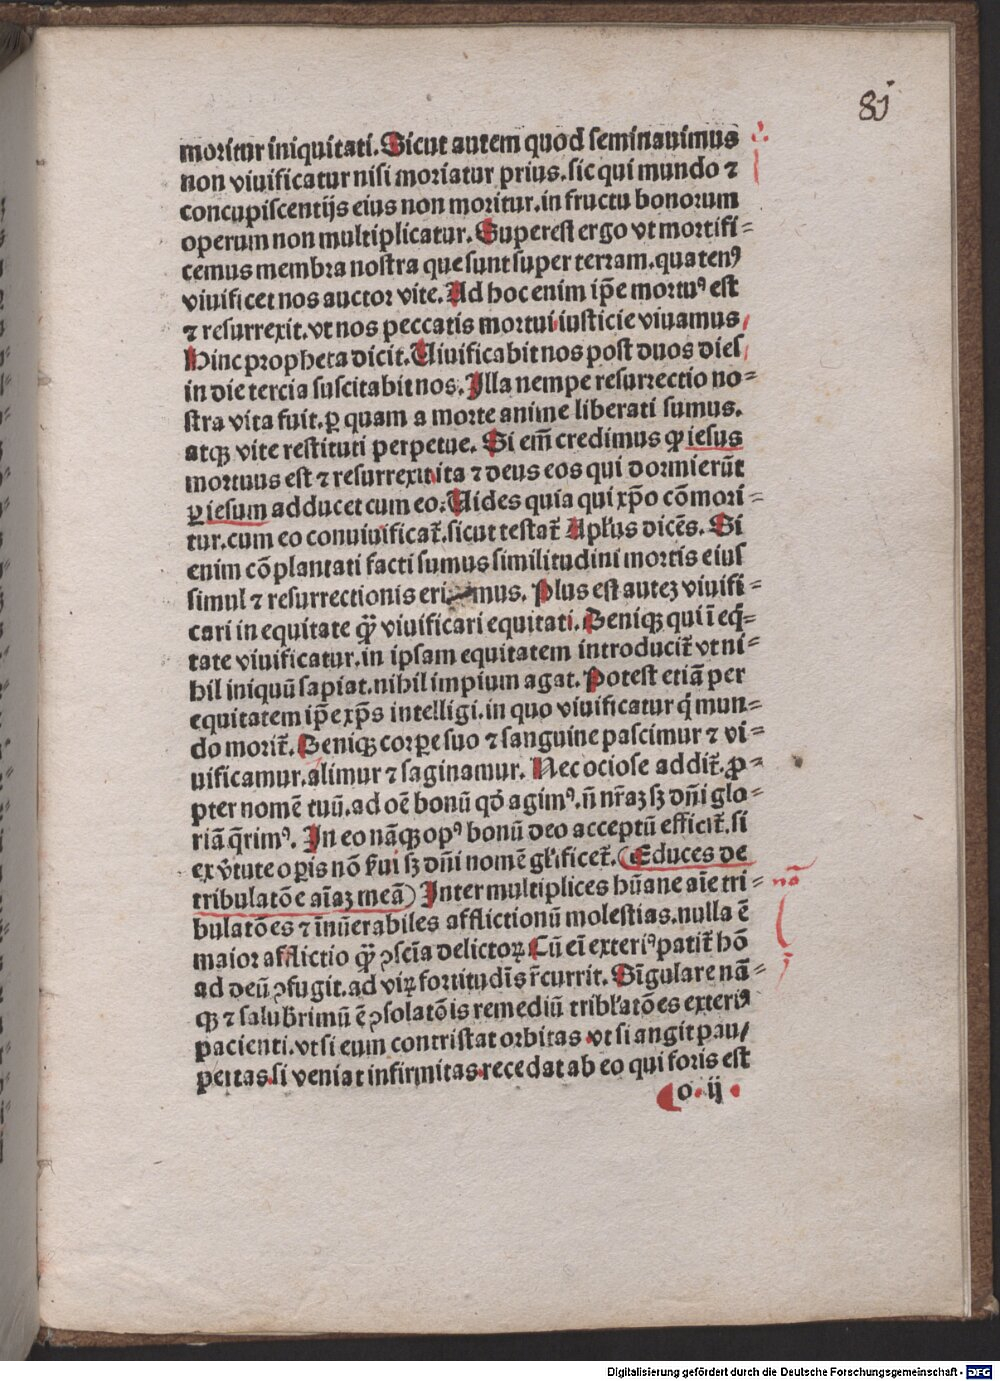 81
moritur iniquitati. Sicut autem quod seminauimus
non viuificatur nisi moriatur prius. sic qui mundo ⁊
concupiscentijs eius non moritur. in fructu bonorum
operum non multiplicatur. Superest ergo vt mortifi⸗
cemus membra nostra que sunt super terram. quatenꝰ
viuificet nos auctor vite. Ad hoc enim ip̄e mortuꝰ est
⁊ resurrexit. vt nos peccatis mortui iusticie viuamus
Hinc propheta dicit. Uiuificabit nos post duos dies
in die tercia suscitabit nos. Illa nempe resurrectio no⸗
stra vita fuit. ꝑ quam a morte anime liberati sumus.
atqꝫ vite restituti perpetue. Si em̄ credimus ꝙ iesus
mortuus est ⁊ resurrexit ita ⁊ deus eos qui dormierūt
ꝑ iesum adducet cum eo. Uides quia qui xp̄o cōmori⸗
tur. cum eo conuiuificat̄. sicut testat̄ Apl̄us dicēs. Si
enim cōplantati facti sumus similitudini mortis eius
simul ⁊ resurrectionis erimus. Plus est autez viuifi⸗
cari in equitate ꝙ̄ viuificari equitati. Deniqꝫ qui ī eq̄⸗
tate viuificatur. in ipsam equitatem introducit̄ vt ni⸗
hil iniquū sapiat. nihil impium agat. Potest etiā per
equitatem ip̄e xp̄s intelligi. in quo viuificatur q̄ mun⸗
do morit̄. Deniqꝫ corꝑe suo ⁊ sanguine pascimur ⁊ vi⸗
uificamur. alimur ⁊ saginamur. Nec ociose addit̄. ꝓ⸗
pter nomē tuū. ad oē bonū qd̄ agimꝰ. n̄ nr̄aꝫ sꝫ dn̄i glo⸗
riā q̄rimꝰ. In eo nāqꝫ opꝰ bonū deo acceptū efficit̄. si
ex v̄tute oꝑis nō sui sꝫ dn̄i nomē gl̄ificet̄. (Educes de
tribulatōe aīaꝫ meā) Inter multiplices hūane aīe tri⸗
bulatōes ⁊ īnūerabiles afflictionū molestias. nulla ē
maior afflictio ꝙ̄ ꝯscīa delictoꝝ. Cū eī exteriꝰ patit̄ hō
ad deū ꝯfugit. ad viꝝ fortitudīs r̄currit. Sīgulare nā⸗
qꝫ ⁊ salubrimū ē ꝯsolatōis remediū tribl̄atōes exteriꝰ
pacienti. vt si eum contristat orbitas vt si angit pau/
pertas. si veniat infirmitas recedat ab eo qui foris est
o ij
Digitalisierung gefördert durch die Deutsche Forschungsgemeinschaft - DFG